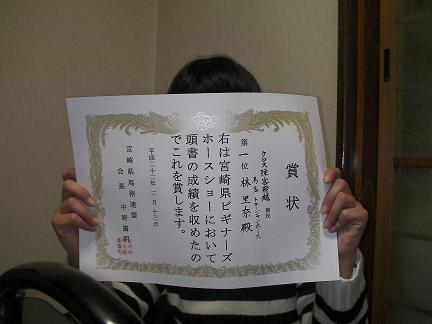 賞状
クロス障害飛越 競技
馬名 トウショウホース
第一位 林里奈殿
右は宮崎県ビギナーズ
ホースショーにおいて
頭書の成績を収めたの
でこれを賞します。
平成二十二年二月十三日
宮崎県馬術連盟
会長 中野廣